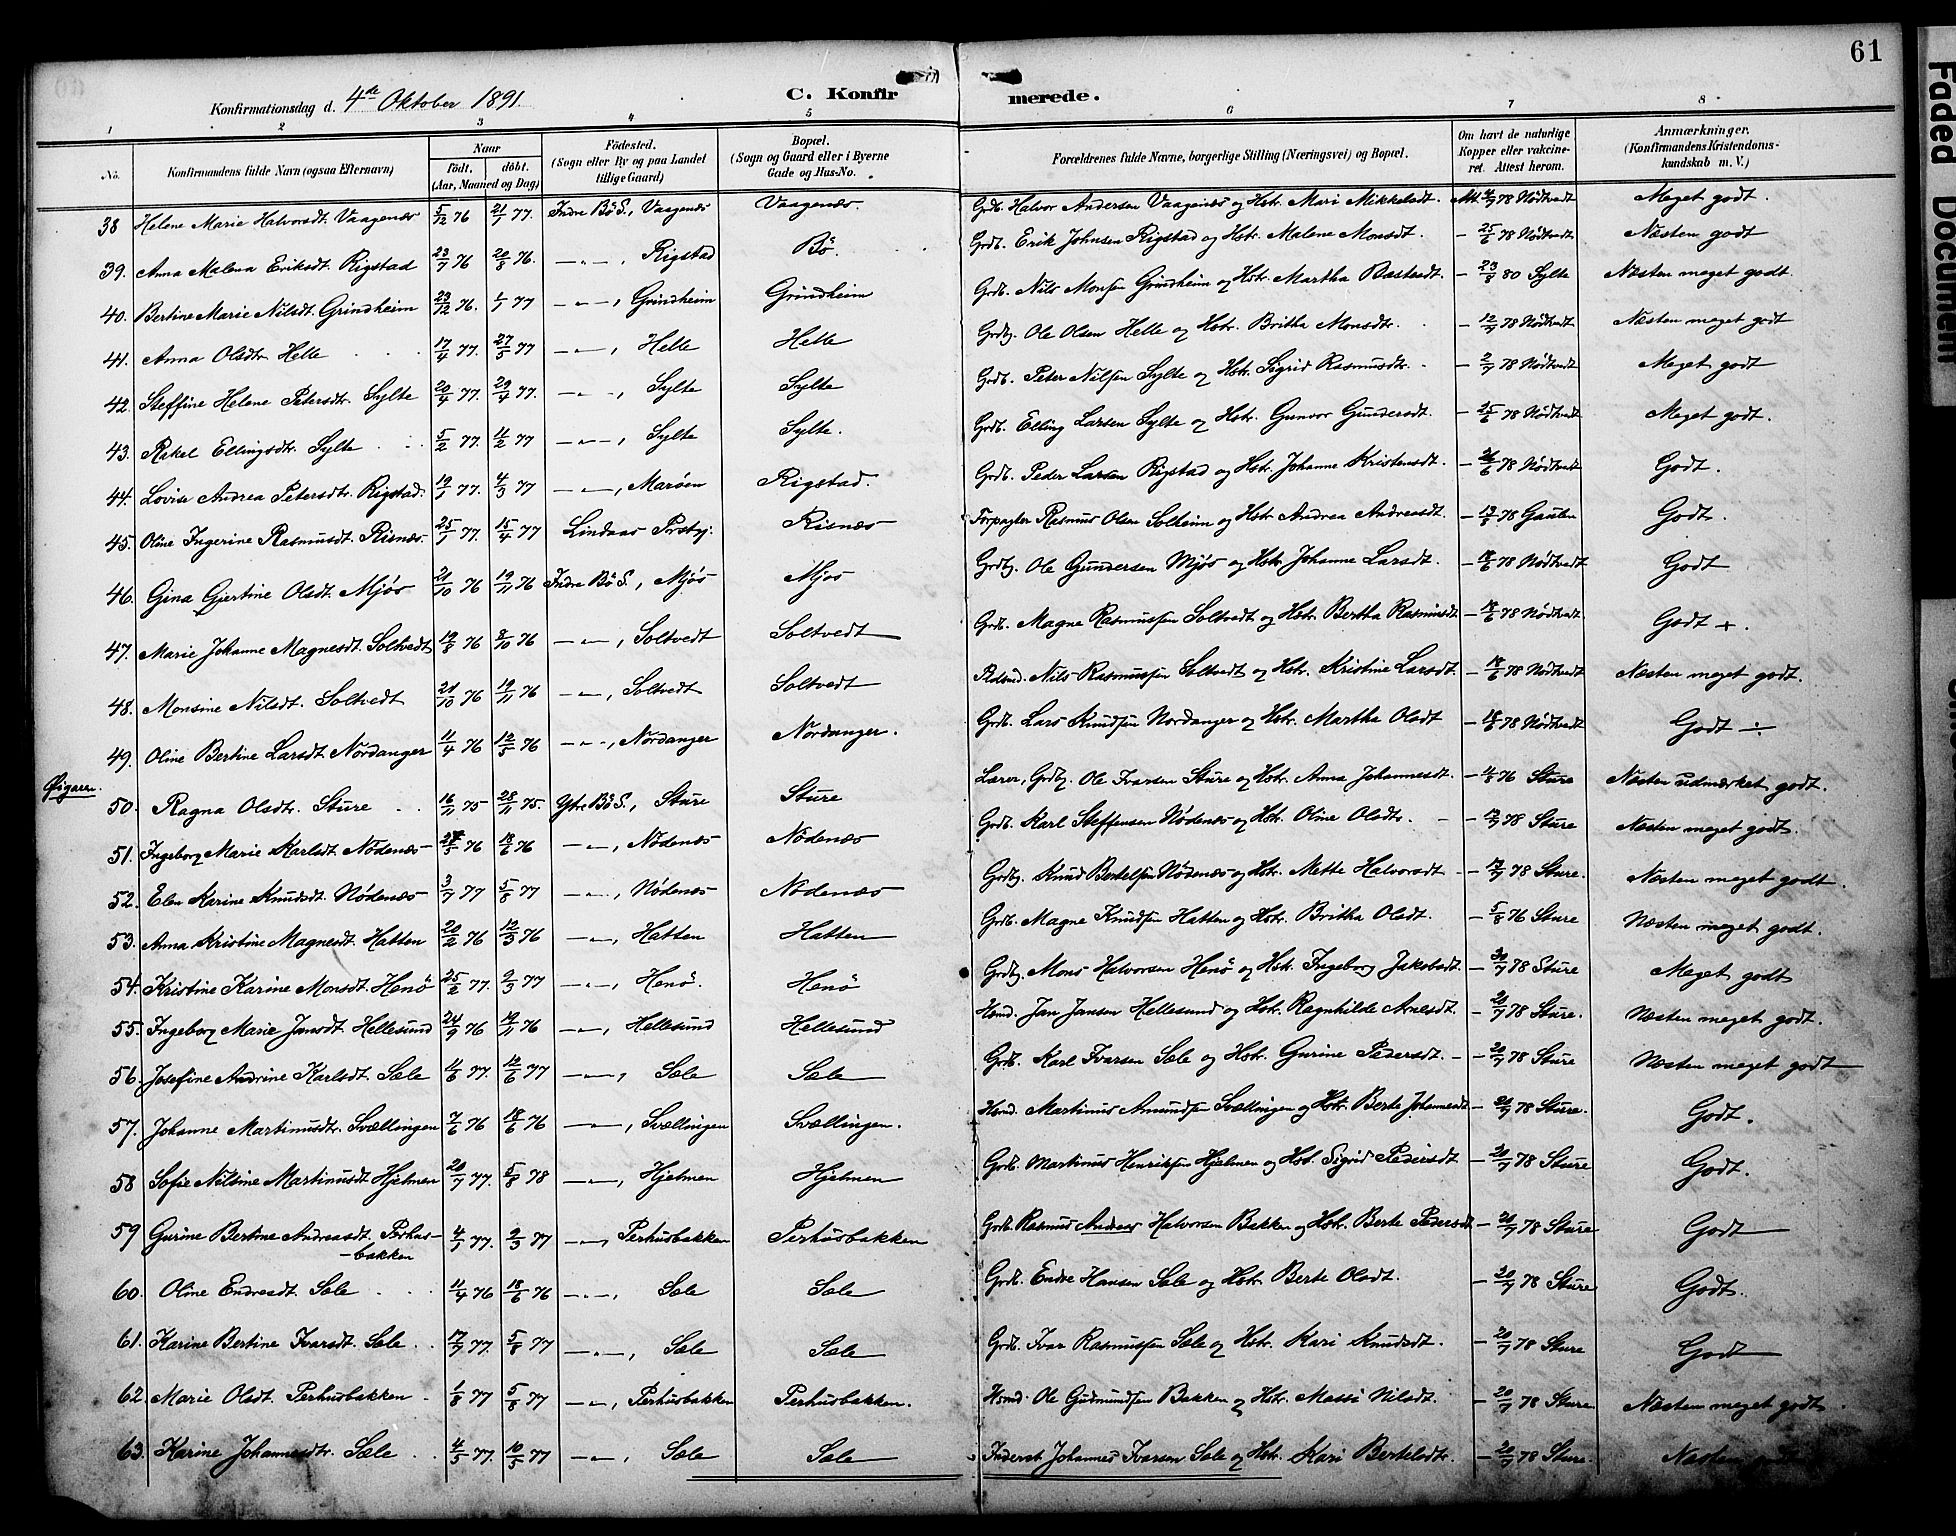 61
Konfirmationsdag d. 4de Oktober 1891.
C. Konfirmerede.
1 2 3 4 5 6 7 8
No. Konfirmandens fulde Navn (ogsaa Efternavn) Naar født. døbt. (Aar, Maaned og Dag) Fødested. (Sogn eller By og paa Landet tillige Gaard) Bopæl. (Sogn og Gaard eller i Byerne Gade og Hus-No. Forældrenes fulde Navne, borgerlige Stilling (Næringsvei) og Bopæl. Om havt de naturlige Kopper eller vakcineret. Attest herom. Anmærkninger. (Konfirmandens Kristendomskundskab m. V.)
38 Helene Marie Halvorsdt. Vaagenæs 5/12 76 21/1 77. Indre Bö S., Vaagenæs Vaagenæs. Grdb. Halvor Andersen Vaagenæs og Hstr. Mari Mikkelsdt. 78 Nödtvedt Meget godt.
39. Anna Malena Eriksdt. Rigstad 23/7 76 20/8 76. —"—, Rigstad Bö. Grdb. Erik Johnsen Rigstad og Hstr. Malene Monsdt. - 25/6 78 Nödtvedt Næsten godt
40. Bertine Marie Nilsdt. Grindheim 23/12 76. 1/1 77 —"—, Grindheim Grindheim Grdb. Nils Monsen Grindheim og Hstr. Martha Bastesdt. - 23/8 80 Sylte Næsten meget godt.
41. Anna Olsdtr. Helle 17/4 77. 27/5 77 —"—, Helle Helle Grdbg. Ole Olsen Helle og Hstr. Britha Monsdtr. - 12/7 78 Nödtvedt Næsten meget godt
42. Steffine Helene Petersdtr. Sylte 20/4 77. 29/4 77. —"—, Sylte Sylte Grdb. Peter Nilsen Sylte og Hstr. Sigrid Rasmusdtr. - 2/7 78 Nödtvedt Meget godt
43. Rakel Ellingsdtr. Sylte 5/2 77. 11/2 77 —"—, Sylte Sylte. Grdb. Elling Larsen Sylte og Hstr. Gunvor Gundersdt. - 25/6 78 Nödtvedt Meget godt.
44. Lovise Andrea Petersdtr. Rigstad. 19/1 77. 4/3 77 —"—, Maröen Rigstad. Grdb. Peder Larsen Rigstad og Hstr. Johanne Kristensdt. 78 Nödtvedt Godt.
45. Oline Ingerine Rasmusdt. Risnæs. 25/1 77. 15/4 77 Lindaas Prstgj. Risnæs Forpagter Rasmus Olsen Solheim og Hstr. Andrea Andreasdt. 78 Gauten Godt.
46. Gina Gjertine Olsdt. Mjös 21/10 76 19/11 76 Indre Bö S., Mjös Mjös Grdbg. Ole Gundersen Mjös og Hstr. Johanne Larsdt. - 18/6 78 Nödtvedt Godt
47. Marie Johanne Magnesdt. Soltvedt 19/8 76 8/10 76 —"—, Soltvedt Soltvedt Grdb. Magne Rasmussen Soltvedt og Hstr. Bertha Rasmusdt - 18/6 78 Nödtvedt Godt +.
48. Monsine Nilsdt. Soltvedt 21/10 76 19/11 76 —"—, Soltvedt Soltvedt Nils Rasmussen Soltvedt og Hstr. Kristine Larsdt. - 18/6 78 Nödtvedt Næsten meget godt.
49. Oline Bertine Larsdt. Nordanger 11/4 76 12/5 76 —"—, Nordanger Nordanger. Grdb. Lars Knudsen Nordanger og Hstr. Martha Olsdt - 18/6 78 Nödtvedt Godt ÷
Øigarn.
50. Ragna Olsdtr. Sture 16/11 75 28/11 75. Ytre Bö S., Sture Sture Lærer, Grdbg. Ole Ivarsen Sture og Hstr. Anna Johannesdt. - 4/8 76 Sture Næsten udmærket godt.
51. Ingeborg Marie Karlsdt. Nödenæs 76 18/6 76 —"—, Nödenæs Nödenæs Grdb. Karl Steffensen Nödenæs og Hstr. Oline Olsdtr. 78 Sture Næsten meget godt.
52. Elen Karine Knudsdt. Nödenæs 3/7 77 5/8 77 —"—, Nödenæs Nödenæs Grdbg. Knud Bertelsen Nödenæs og Hstr. Mette Halvorsdt 78 Sture. Næsten meget godt.
53. Anna Kristine Magnesdt. Hatten 20/2 76 12/3 76 —"—, Hatten Hatten Grdb. Magne Knudsen Hatten og Hstr. Britha Olsdt. - 5/8 76 Sture Næsten meget godt.
54. Kristine Karine Monsdt. Henö 25/2 77. 2/3 77 —"—, Henö. Henö Grdbg. Mons Halvorsen Henö og Hstr. Ingeborg Jakobsdt. - 20/7 78 Sture Meget godt
55. Ingeborg Marie Jansdt. Hellesund 24/9 76 19/11 76 —"—, Hellesund Hellesund Hsmd. Jan Jansen Hellesund og Hstr. Ragnhilde Arnesdt - 20/7 78 Sture. Næsten meget godt.
56. Josefine Andrine Karlsdt. Sæle 4/6 77. 12/6 77 —"—, Sæle Sæle Grdb. Karl Ivarsen Sæle og Hstr. Gurine Pedersdt. - 20/7 78 Sture Næsten meget godt
57. Johanne Martinusdtr. Svællingen 7/6 76 18/6 76 —"—, Svællingen Svællingen. Hsmd. Martinus Amundsen Svællingen og Hstr. Berte Johannesdt - 20/7 78 Sture. Godt.
58 Sofie Nilsine Martinusdt Hjelmen 20/7 77. 5/8 78 —"—, Hjelmen Hjelmen Grdb. Martinus Henriksen Hjelmen og Hst. Sigrid Pedersdt - 20/7 78 Sture Godt.
59 Gurine Bertine Andreasdt. Perhus-
-bakken 4/1 77. 2/3 77 —"—, Perhusbakken Perhusbakken Grdb. Rasmus Andreas Halvorsen Bakken og Hstr. Berte Pedersdt - 20/7 78 Sture Godt
60. Oline Endresdt. Sæle 11/4 76 18/6 76 —"—, Sæle Sæle Grdb. Endre Hansen Sæle og Hstr. Berte Olsdt. - 20/7 78 Sture Godt.
61. Karine Bertine Ivarsdt. Sæle 17/7 77. 5/8 77 —"—, Sæle Sæle Grdb. Ivar Rasmussen Sæle og Hst. Kari Knudsdt. - 20/7 78 Sture Godt
62. Marie Olsdt. Perhusbakken 1/8 77 5/8 77 —"—, Perhusbakken Perhusbakken. Hsmd. Ole Gudmundsen Bakken og Hstr. Massi Nilsdt. - 20/7 78 Sture Næsten meget godt.
63. Karine Johannesdtr. Sæle 4/5 77. 10/5 77 —"—, Sæle Sæle Inderst Johannes Ivarsen Sæle og Hstr. Kari Bertelsdt. - 20/7 78 Sture. Næsten
Faded Document